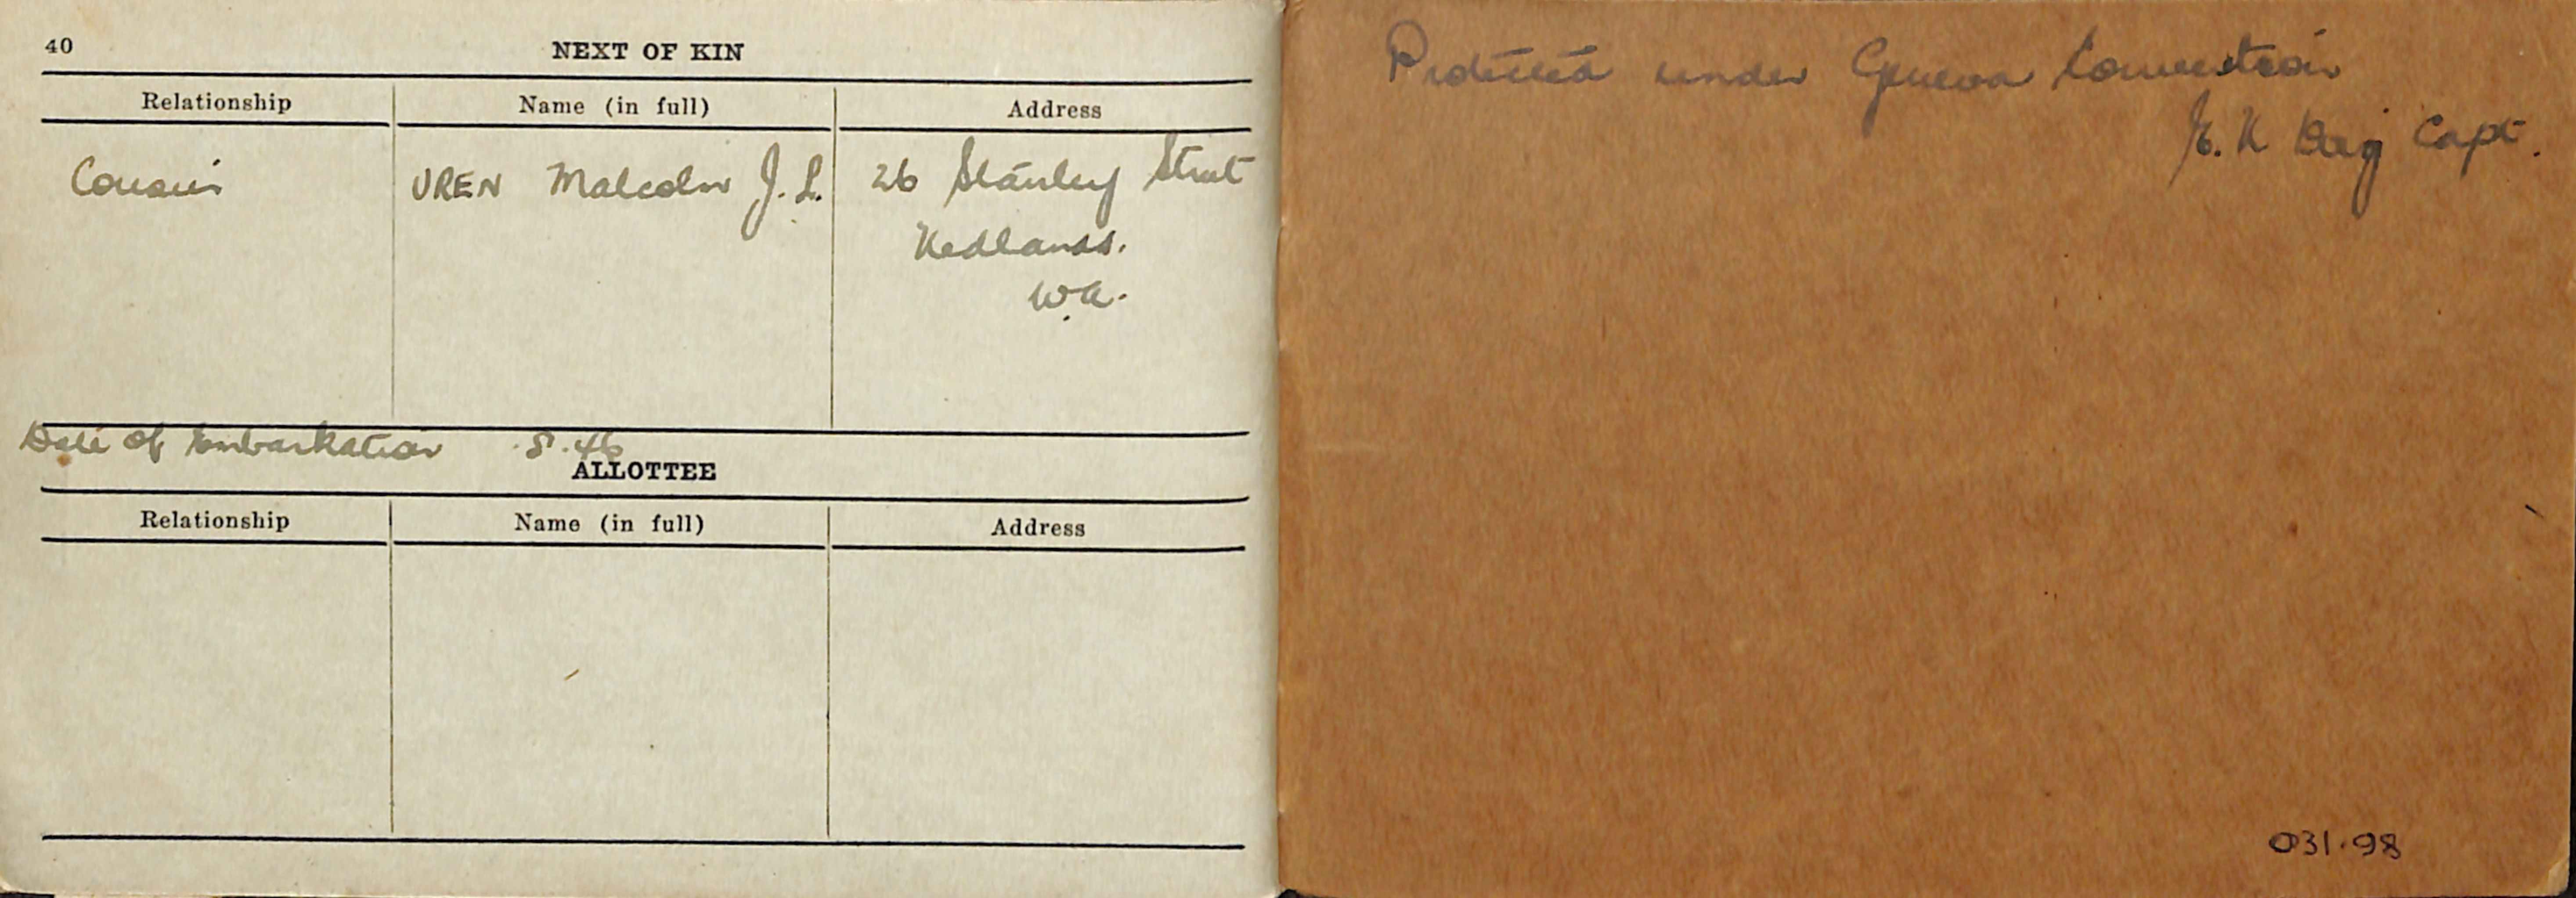 40
NEXT OF KIN
Relationship Name (in full) Address
Cousin UREN Malcolm J. L. 26 Stanley Street
Nedlands.
W.A.
Date of Embarkation .8.46
ALLOTTEE
Relationship Name (in full) Address
Protected under Geneva Convention
K Capt.
031.98